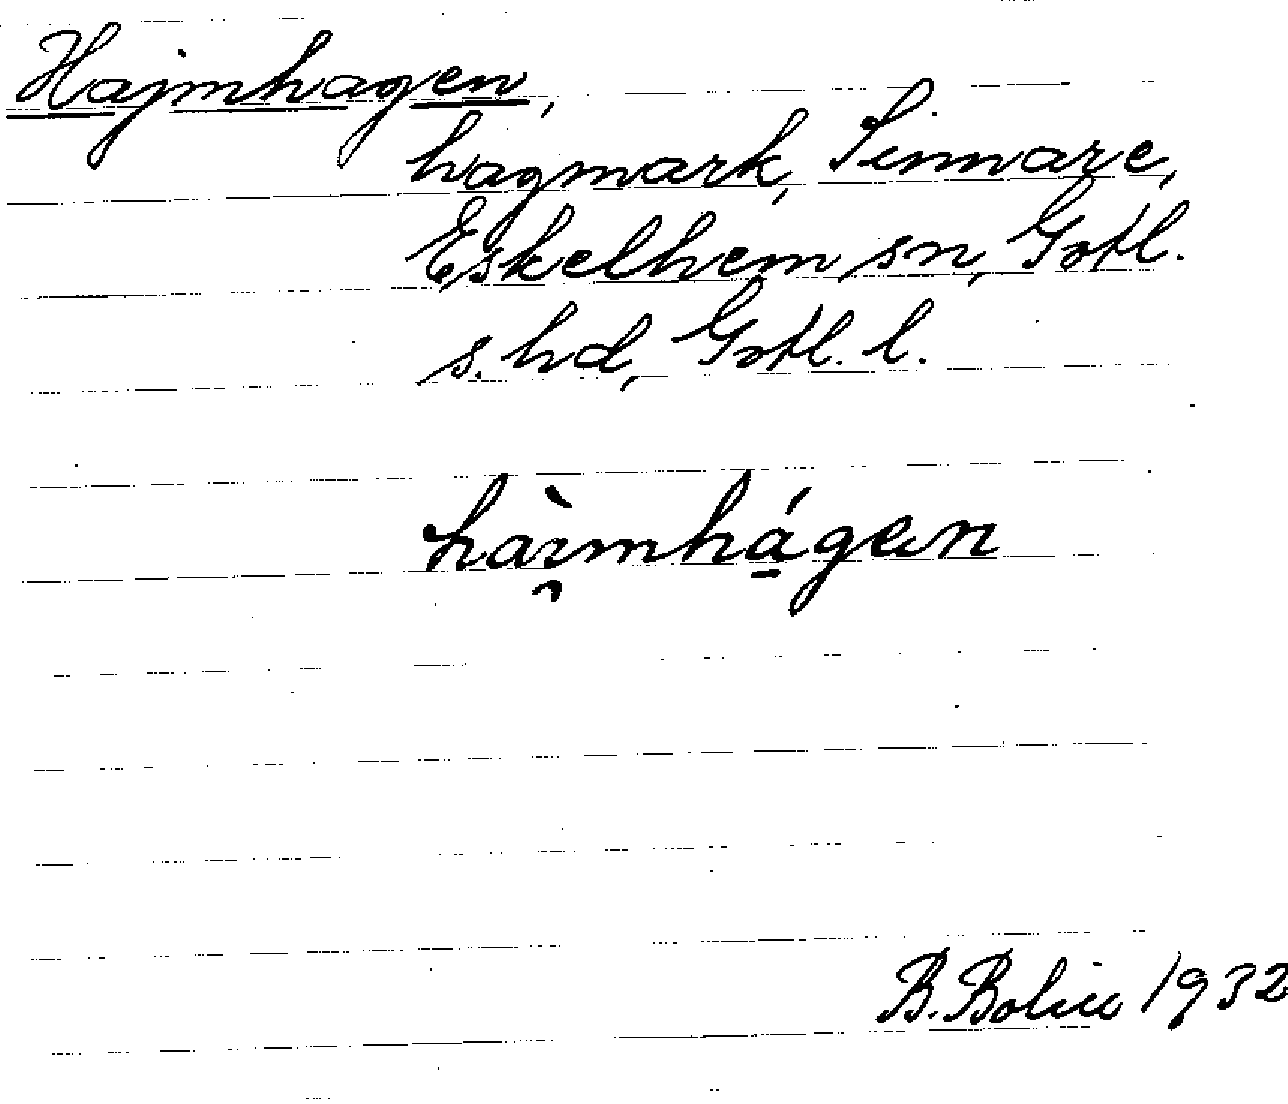 Hajmhagen,
hagmark, Sinnare,
Eskelhem sn, Gotl.
s. hd, Gotl. l.
hàimhágan
B. Bolin 1932